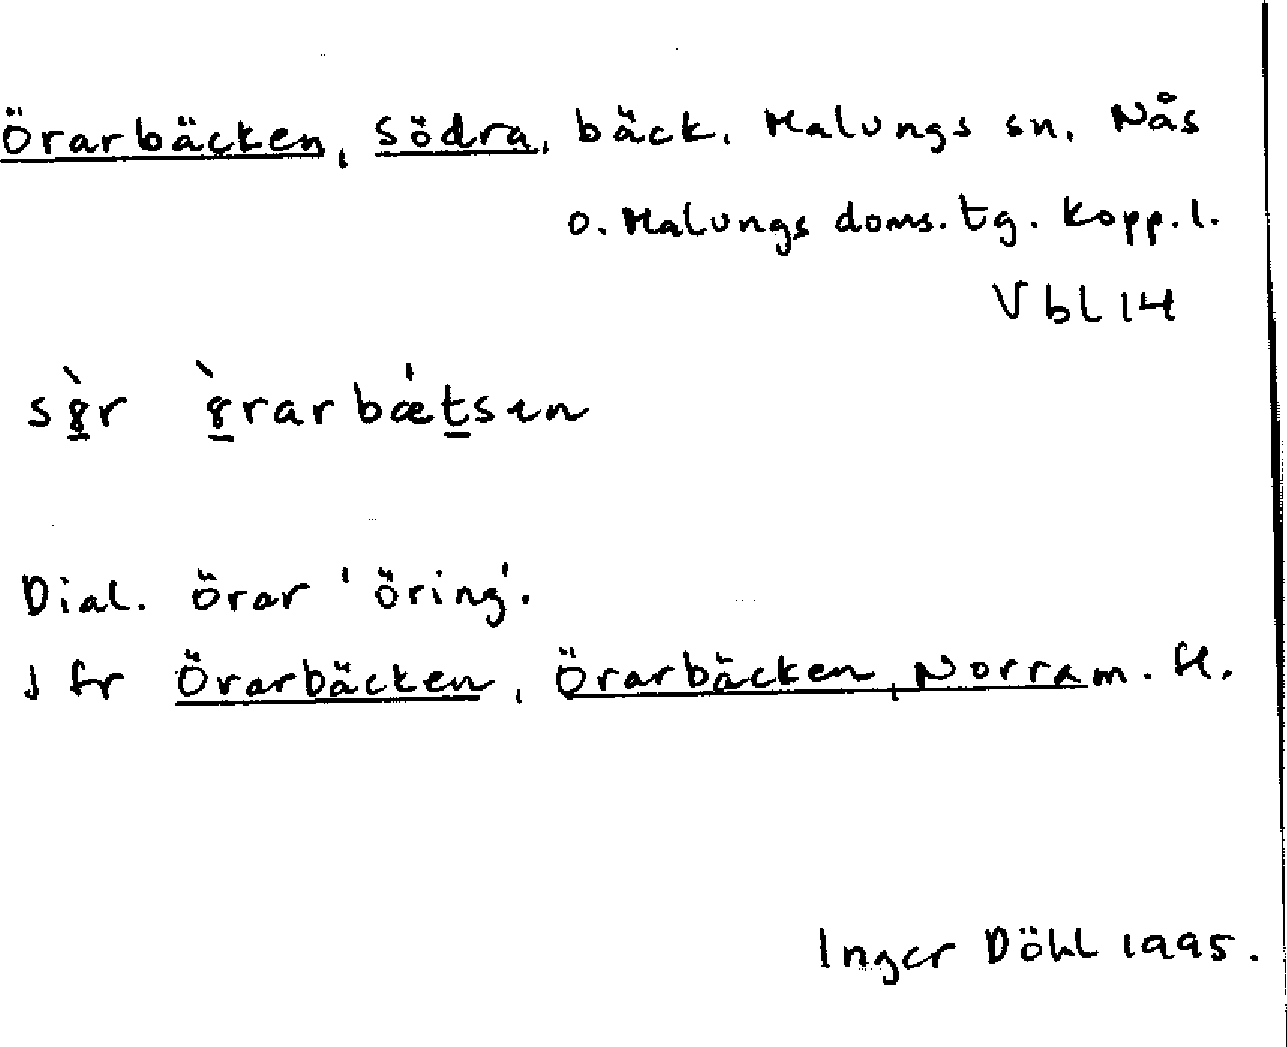 Örarbäcken, Södra, bäck. Malungs sn, Nås
o. Malungs doms.tg. Kopp.l.
Vbl 14
sö̀r ö̀rarbǽtsɪn
Dial. örar 'öring'.
Jfr Örarbäcken, Örarbäcken, Norra m. fl.
Inger Döhl 1995.